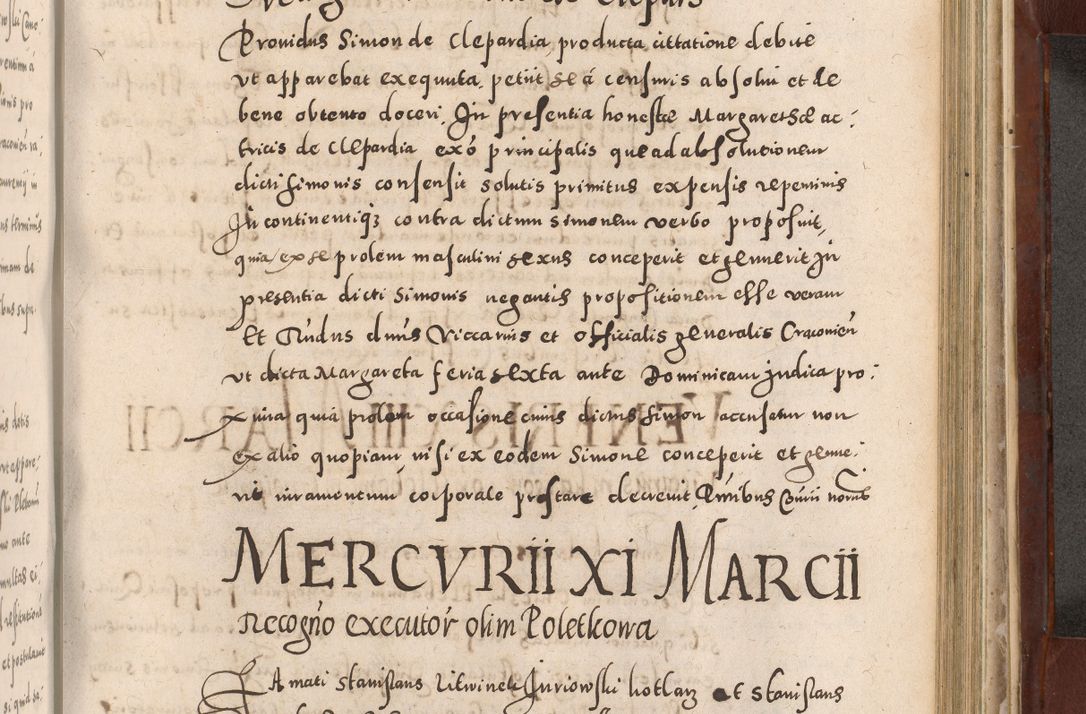 Providus Simon de Clepardia, producta cittatione debite
vt apparebat exequuta, petiit se á censuris absolui et de
bene obtento doceri, In presentia honestæ Margarethæ ac:
tricis de Clepardia exó principalis que ad absolutionem
dicti Simonis consensit solutis primitus expensis
In continentiqz contra dictum Simonem verbo proposuit,
quia ex se prolem masculini sexus conceperit et genuerit In
presentia dicti Simonis negantis propositionem esse veram
Et Rñdus dnus Viccarius et officialis generalis Cracouien̄
vt dicta Margareta feria sexta ante Dominicam Judica pro:
xima quia prolem occasione cuius dictus Simon accusatur non
ex alio quopiam, nisi ex eodem Simone conceperit et genue:
rit iuramentum corporale prestare decreuit,
MERCVRII XI MARCII
Recogño executor̄ olim Poletkowa
Famati Stanislaus Litwinek Juriowski kotlarz et Stanislaus